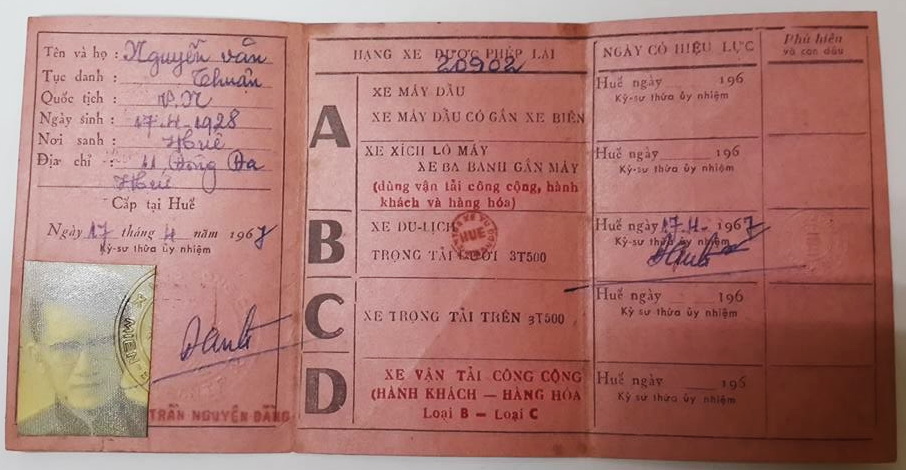 Tên và họ : Nguyễn văn
Tục danh : Thuận
Quốc tịch : V.N
Ngày sinh : 17-4-1928
Nơi sanh : Huế
Địa chỉ : 11 Đống Đa
Huế
Cấp tại Huế
Ngày 17 tháng 4 năm 1967
Kỹ-sư thừa ủy nhiệm
MIỀN
TRẦN NGUYÊN ĐĂNG
HẠNG XE ĐƯỢC PHÉP LÁI
20902
A
XE MÁY DẦU
XE MÁY DẦU CÓ GẮN XE BIÊN
XE XÍCH LÔ MÁY
XE BA BÁNH GẮN MÁY
(dùng vận tải công cộng, hành
khách và hàng hóa)
B
XE DU-LỊCH
HUẾ
TRỌNG TẢI DƯỚI 3T500
C
XE TRỌNG TẢI TRÊN 3T500
D
XE VẬN TẢI CÔNG CỘNG
(HÀNH KHÁCH — HÀNG HÓA
Loại B — Loại C
NGÀY CÓ HIỆU LỰC
Huế ngày 196
Kỹ-sư thừa ủy nhiệm
Huế ngày 196
Kỹ-sư thừa ủy nhiệm
Huế ngày 17-4-1967
Kỹ-sư thừa ủy nhiệm
Huế ngày 196
Kỹ-sư thừa ủy nhiệm
Huế ngày 196
Kỹ-sư thừa ủy nhiệm
Phù hiệu
và con dấu